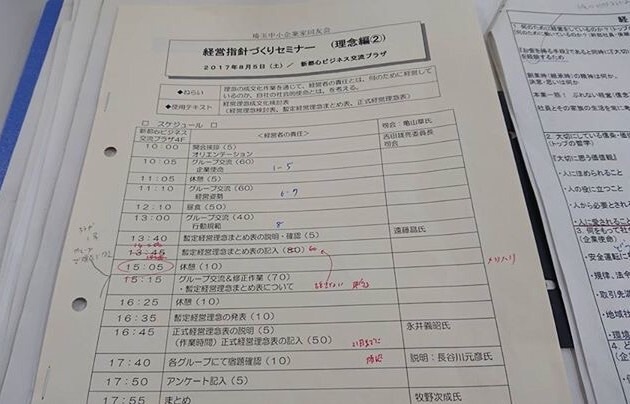 埼玉中小企業家同友会
経営指針づくりセミナー （理念編②）
2017年8月5日（土）／ 新都心ビジネス交流プラザ
◆ねらい
理念の成文化作業を通じて、経営者の責任とは、何のために経営しているのか、自社の社会的使命とは、を考える。
◆使用テキスト
経営理念成文化検討表
（経営理念検討表、暫定経営理念まとめ表、正式経営理念表）
□ スケジュール □
新都心ビジネス交流プラザ4F
＜経営者の責任＞
司会：亀山華氏
10:00 開会挨拶（5）
オリエンテーション
吉田雄亮委員長
司会
10:05 グループ交流（60）
企業使命
1-5
11:05 休憩（5）
11:10 グループ交流（60）
経営姿勢
6-7
12:10 昼食（50）
13:00 グループ交流（40）
行動規範
8
13:40 暫定経営理念まとめ表の説明・確認（5） 遠藤昌氏
13:45 暫定経営理念まとめ表の記入（80） 60
15:05 休憩（10）
15:15 グループ交流＆修正作業（70）
・暫定経営理念まとめ表について
16:25 休憩（10）
16:35 暫定経営理念の発表（10）
16:45 正式経営理念表の説明（5）
（作業時間）正式経営理念表の記入（50）
永井義昭氏
17:40 各グループにて宿題確認（10） 説明：長谷川元彦氏
17:50 アンケート記入（5）
17:55 まとめ 牧野次成氏
創業時（経承時）の精神は何か。
決意・思いは何か
社員とその家族の生活を常に考
2．大切にしている信条・価
（トップの哲学）
『大切に思う価値観』
・人に注められること
・人の役に立つこと
・人から必要とされ
・人に愛されること
3．何をもって社会
（企業使命）
・安全運転に
・規律、法令
・取引先
・地域社